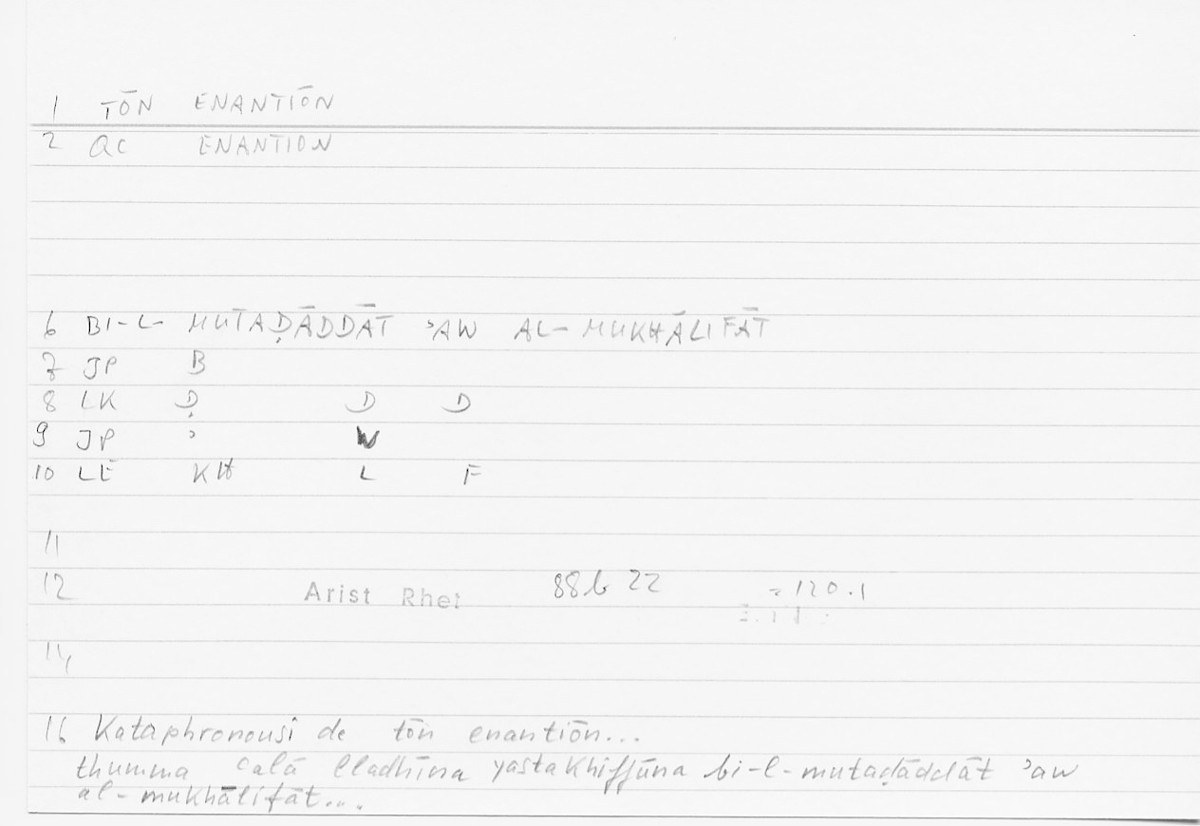 1 TŌN ENANTIŌN
2 QC ENANTION
6 BI-L- MUTAḌĀDDĀT ʾAW AL-MUKHĀLIFĀT
7 JP B
8 LK Ḍ D D
9 JP ʾ W
10 LE KH L F
11
12 Arist Rhet 88b 22 = 120.1
14
16 Kataphronousi de tōn enantiōn...
thumma ʿalā lladhīna yastakhiffūna bi-l-mutaḍāddāt ʾaw
al-mukhālifāt...